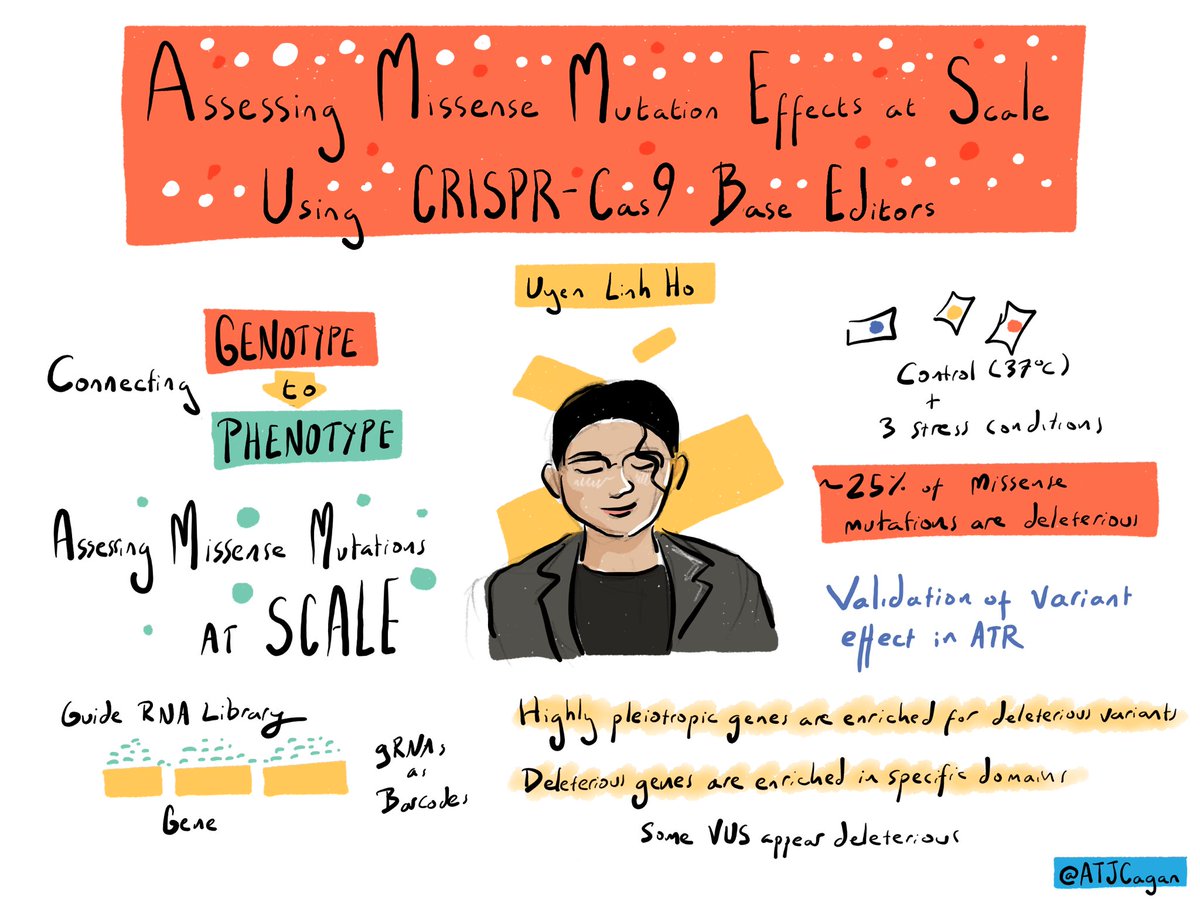 Assessing Missense Mutation Effects at Scale
Using CRISPR-Cas9 Base Editors
Uyen Linh Ho
Connecting
GENOTYPE
to
PHENOTYPE
Assessing Missense Mutations
AT SCALE
Guide RNA Library
gRNAs
as
Barcodes
Gene
Control (37°C)
+
3 stress conditions
~25% of missense
mutations are deleterious
Validation of variant
effect in ATR
Highly pleiotropic genes are enriched for deleterious variants
Deleterious genes are enriched in specific domains
Some VUS appear deleterious
@ATJCagan